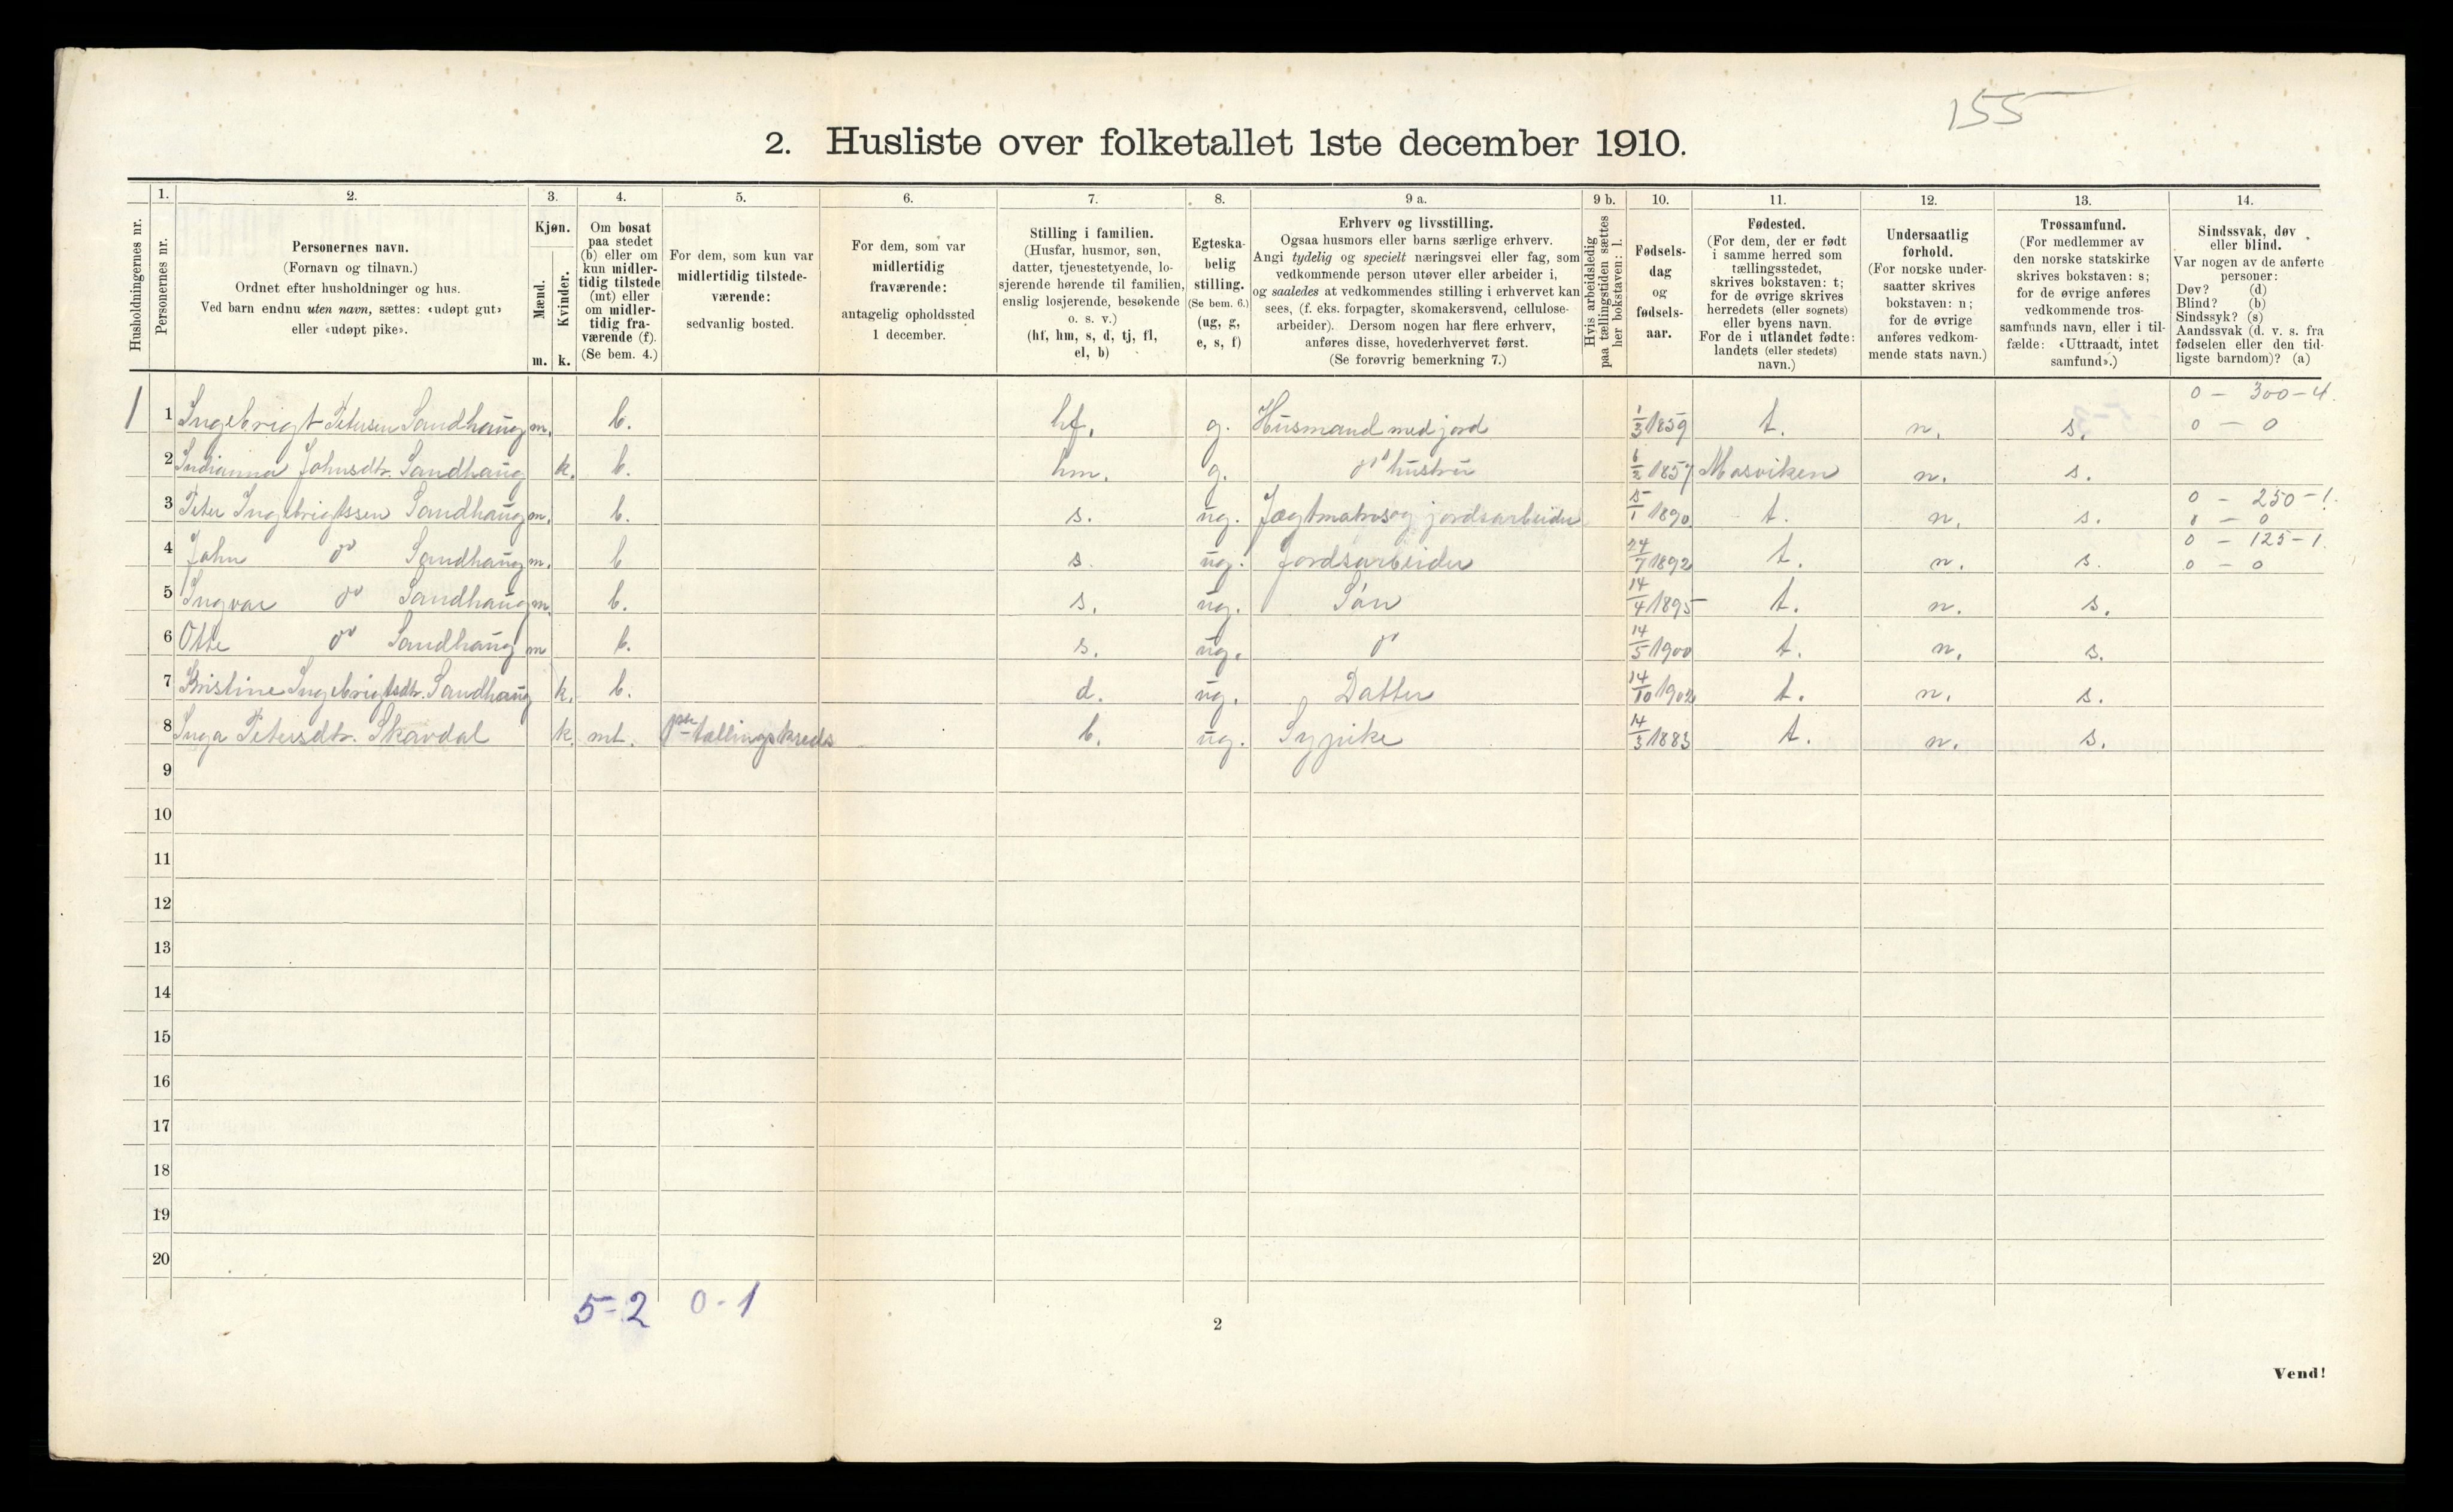 155
2. Husliste over folketallet 1ste december 1910.
Husholdningernes nr.
1.
Personernes nr.
2.
Personernes navn.
(Fornavn og tilnavn.)
Ordnet efter husholdninger og hus.
Ved barn endnu uten navn, sættes: «udøpt gut»
eller «udøpt pike».
3.
Kjøn.
Mænd.
Kvinder.
m. k.
4.
Om bosat
paa stedet
(b) eller om
kun midler-
tidig tilstede
(mt) eller
om midler-
tidig fra-
værende (f).
(Se bem. 4.)
5.
For dem, som kun var
midlertidig tilstede-
værende:
sedvanlig bosted.
6.
For dem, som var
midlertidig
fraværende:
antagelig opholdssted
1 december.
7.
Stilling i familien.
(Husfar, husmor, søn,
datter, tjenestetyende, lo-
sjerende hørende til familien,
enslig losjerende, besøkende
o. s. v.)
(hf, hm, s, d, tj, fl,
el, b)
8.
Egteska-
belig
stilling.
(Se bem. 6.)
(ug, g,
e, s, f)
9 a.
Erhverv og livsstilling.
Ogsaa husmors eller barns særlige erhverv.
Angi tydelig og specielt næringsvei eller fag, som
vedkommende person utøver eller arbeider i,
og saaledes at vedkommendes stilling i erhvervet kan
sees, (f. eks. forpagter, skomakersvend, cellulose-
arbeider). Dersom nogen har flere erhverv,
anføres disse, hovederhvervet først.
(Se forøvrig bemerkning 7.)
9 b.
Hvis arbeidsledig
paa tællingstiden sættes
her bokstaven: l.
10.
Fødsels-
dag
og
fødsels-
aar.
11.
Fødested.
(For dem, der er født
i samme herred som
tællingsstedet,
skrives bokstaven: t;
for de øvrige skrives
herredets (eller sognets)
eller byens navn.
For de i utlandet fødte:
landets (eller stedets)
navn.)
12.
Undersaatlig
forhold.
(For norske under-
saatter skrives
bokstaven: n;
for de øvrige
anføres vedkom-
mende stats navn.)
13.
Trossamfund.
(For medlemmer av
den norske statskirke
skrives bokstaven: s;
for de øvrige anføres
vedkommende tros-
samfunds navn, eller i til-
fælde: «Uttraadt, intet
samfund».)
14.
Sindssvak, døv
eller blind.
Var nogen av de anførte
personer:
Døv? (d)
Blind? (b)
Sindssyk? (s)
Aandssvak (d. v. s. fra
fødselen eller den tid-
ligste barndom)? (a)
0 - 300-4.
1 1 Ingebrigt Petersen Sandhaug m. b. hf. g. Husmand med jord 1/3 1859 t. n. s. 0 - 0
2 Johnsdtr. Sandhaug k. b. hm. g. do hustru 6/2 1857 Mosviken n. s.
0 - 250-1.
3 Peter Ingebrigtssen Sandhaug m. b. s. ug. Jægtmatros og jordsarbeider 5/1 1890 t. n. s. 0 - 0
0 - 125-1.
4 John do Sandhaug m. b s. ug. Jordsarbeider 24/7 1892 t. n. s. 0 - 0
5 Ingvar do Sandhaug m. b. s. ug. Søn 14/4 1895 t. n. s.
6 Otte do Sandhaug m b. s. ug. do 14/5 1900 t. n. s.
7 Kristine Ingebrigtsdtr. Sandhaug k. b. d. ug. Datter 14/10 1902 t. n. s.
8 Inga Petersdtr. Skavdal k. mt. tællingskreds b. ug. Sypike 14/3 1883 t. n. s.
9
10
11
12
13
14
15
16
17
18
19
20
5-2 0-1
2
Vend!